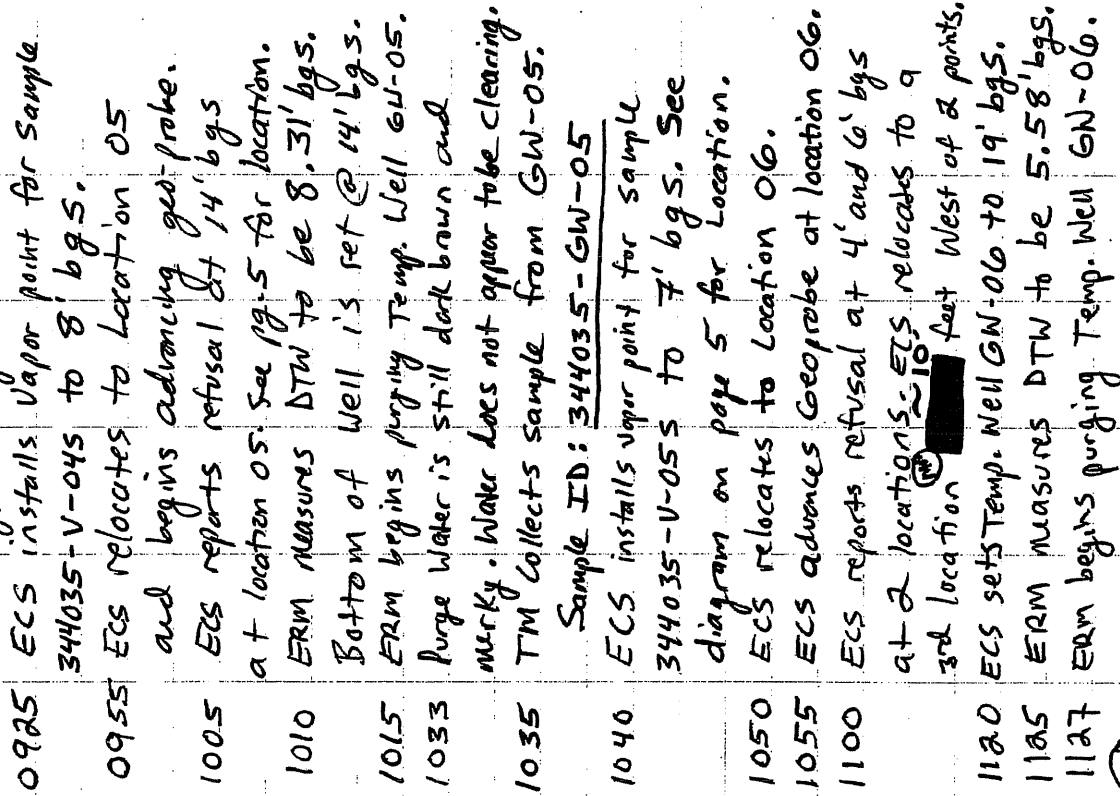 0925 ECS installs vapor point for sample
344035-V-04S to 8' bgs.
0955 ECS relocates to Location 05
and begins advancing geo-probe.
1005 ECS reports refusal at 14' bgs
at location 05. See pg. 5 for location.
1010 ERM measures DTW to be 8.31' bgs.
Bottom of Well is set @ 14' bgs.
1015 ERM begins purging Temp. Well GW-05.
1033 Purge Water is still dark brown and
murky. Water does not appear to be clearing.
1035 TM Collects sample from GW-05.
Sample ID: 344035-GW-05
1040 ECS installs vapor point for sample
344035-V-05S to 7' bgs. See
diagram on page 5 for Location.
1050 ECS relocates to Location 06.
1055 ECS advances Geoprobe at location 06.
1100 ECS reports refusal at 4' and 6' bgs
at 2 locations. ECS relocates to a
3rd location ~10' feet West of 2 points.
1120 ECS sets Temp. Well GW-06 to 19' bgs.
1125 ERM measures DTW to be 5.58' bgs.
1127 ERM begins purging Temp. Well GW-06.